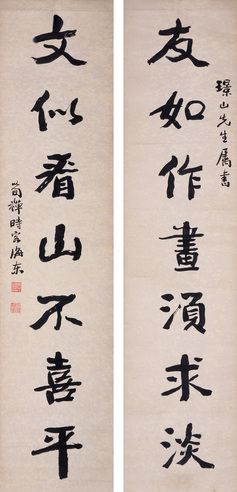 友如作畫須求淡
璟山先生屬書
文似看山不喜平
時客海東